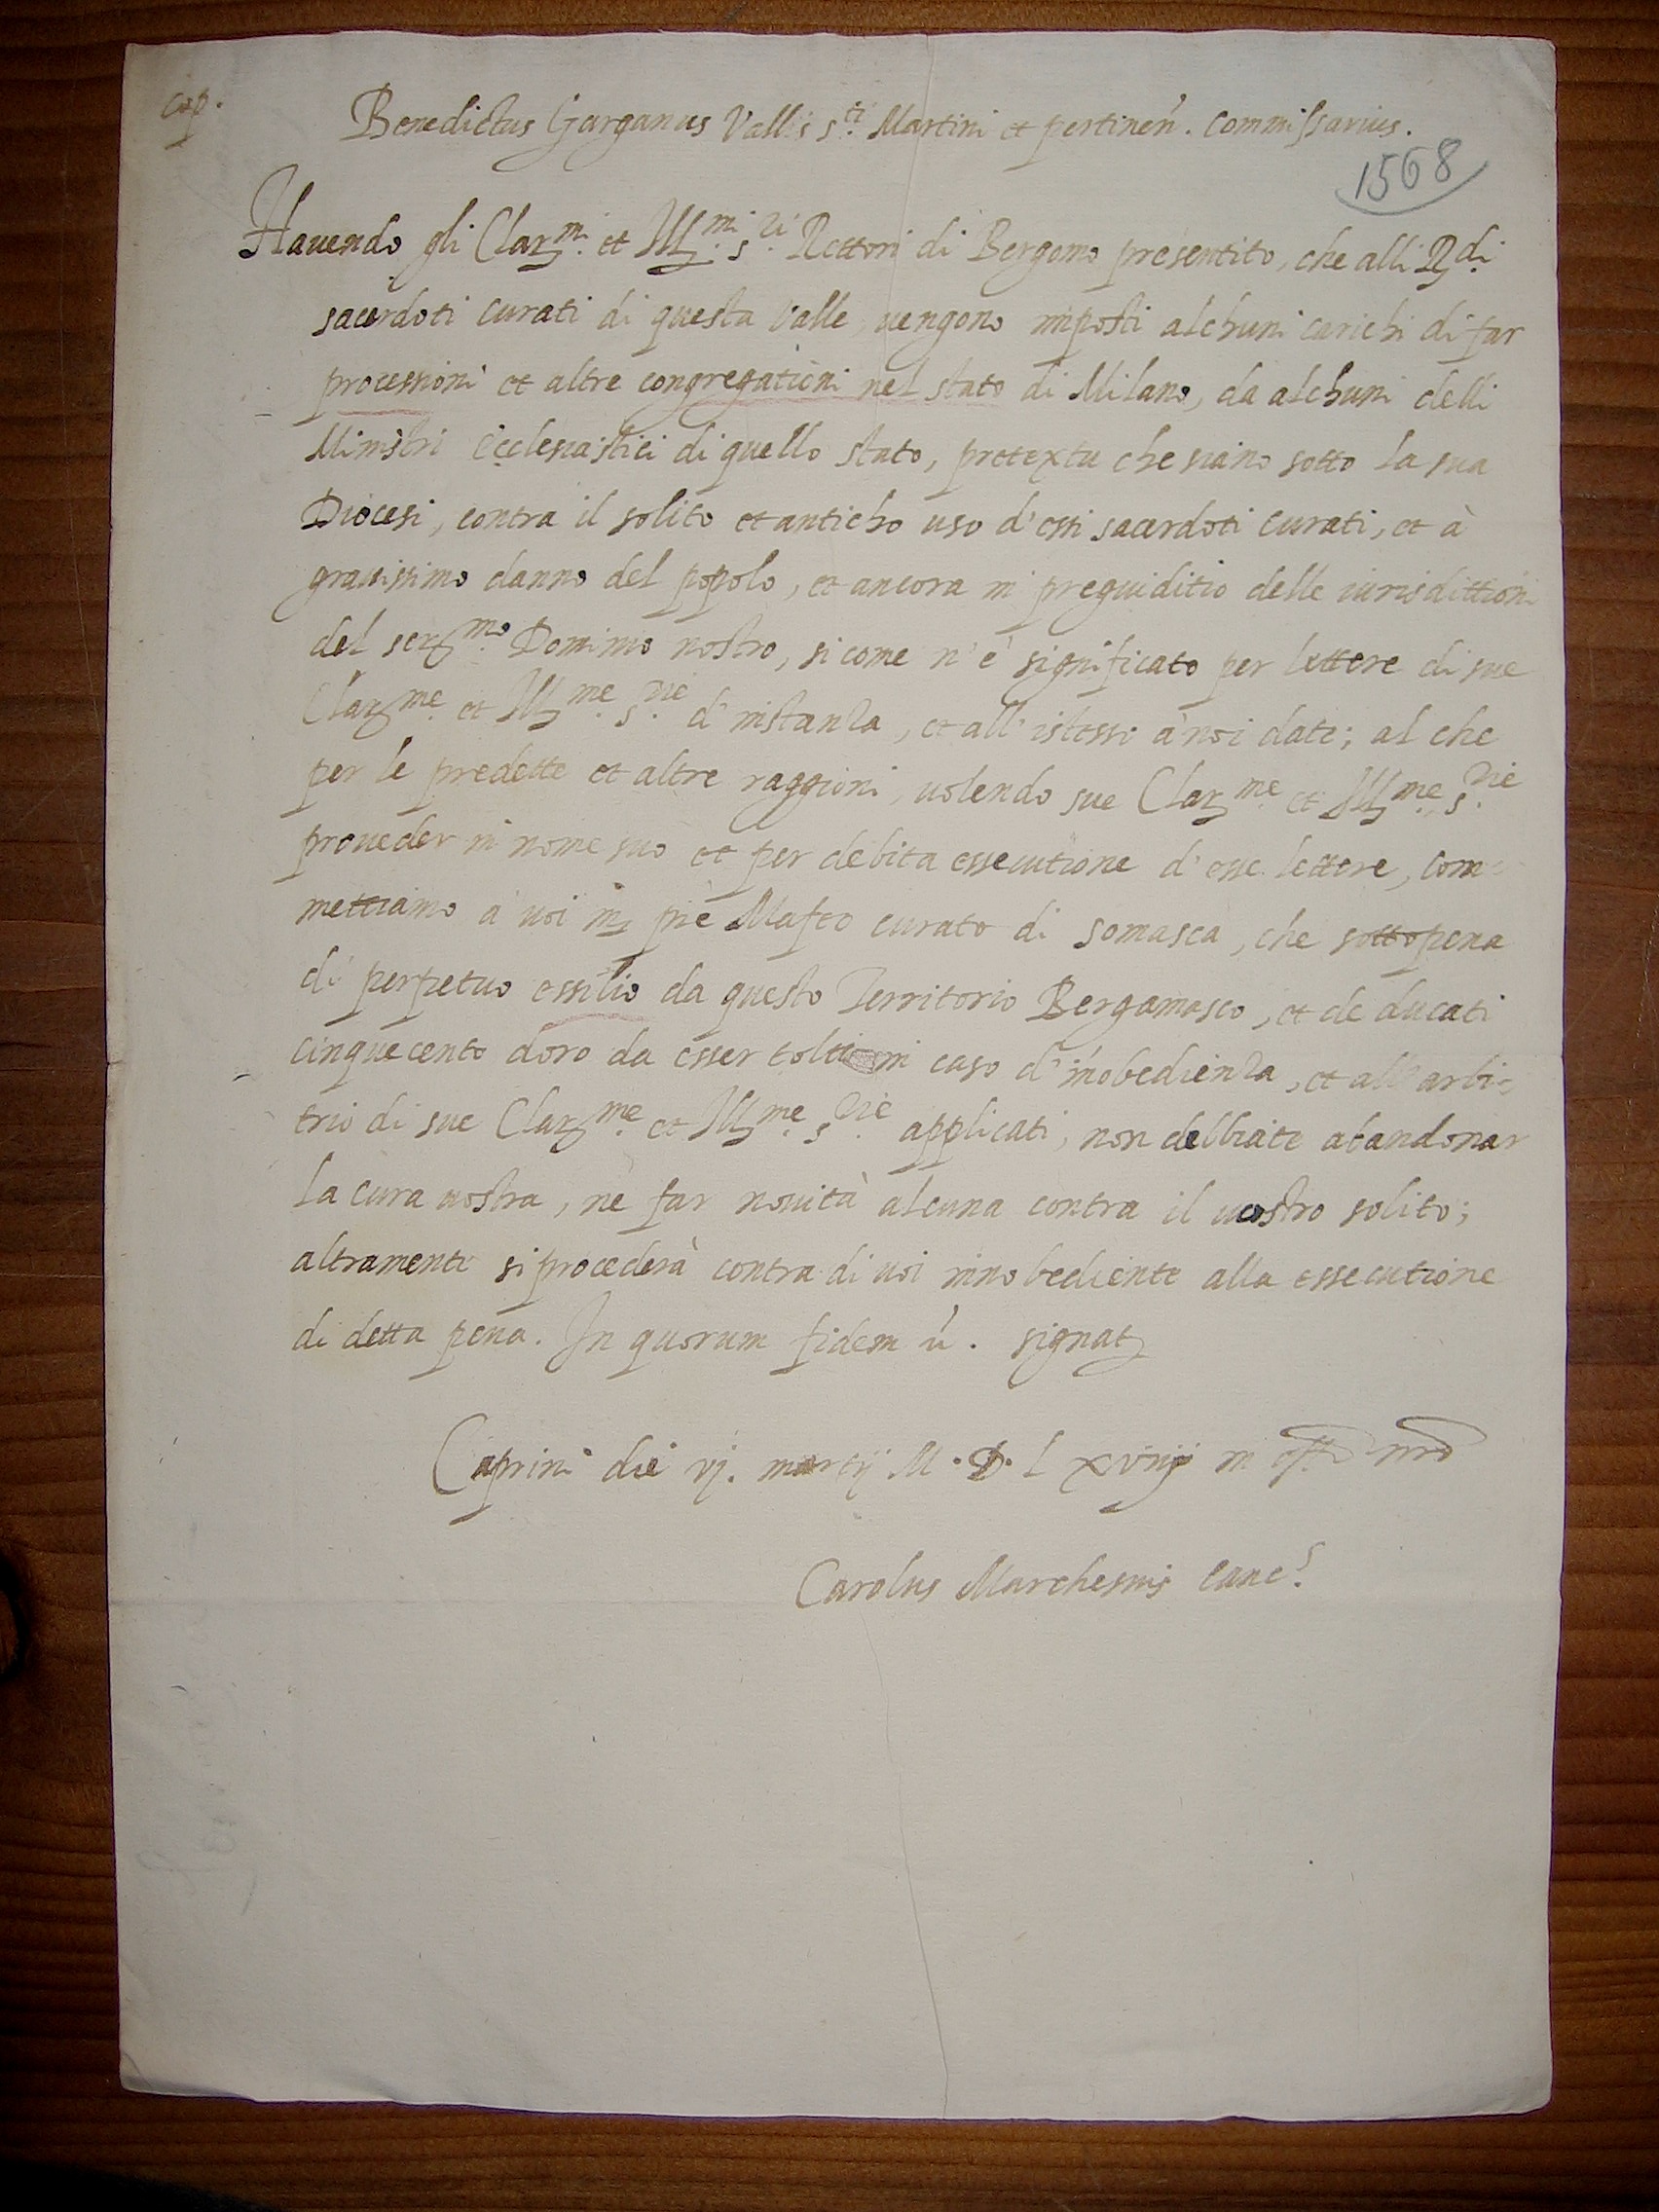 cop.
Benedictus Garganus Vallis s.ti Martini et pertinen. Commissarius.
1568
Hauendo gli Clar.mi et Ill.mi s.ri Rettori di Bergomo presentito, che alli R.di
sacerdoti curati di questa Valle, uengono imposti alchuni carichi di far
processioni et altre congregationi nel stato di Milano, da alchuni delli
Ministri Ecclesiastici di quello stato, pretextu che siano sotto la sua
Diocesi, contra il solito et anticho uso d'essi sacerdoti curati, et à
grauissimo danno del popolo, et ancora in preguiditio delle iurisdittioni
del ser.mo Dominio nostro, si come n'è significato per lettere di sue
Clar.me et Ill.me s.rie d'instanza, et all'istessi à noi date; al che
per le predette et altre raggioni, uolendo sue Clar.me et Ill.me s.rie
proueder in nome suo et per debita essecutione d'esse lettere, com=
mettiamo à uoi m. pre Mafeo curato di Somasca, che sotto pena
di perpetuo essilio da questo Territorio Bergamasco, et de ducati
cinquecento d'oro da esser tolti in caso d'inobedienza, et all'arbi=
trio di sue Clar.me et Ill.me s.rie applicati, non debbiate abandonar
la cura uostra, nè far nouità alcuna contra il uostro solito;
altramente si procederà contra di uoi innobediente alla essecutione
di detta pena. In quorum fidem signat
Caprini die vj. martij M.D.Lxviij in
Carolus Marchesius Canc.s